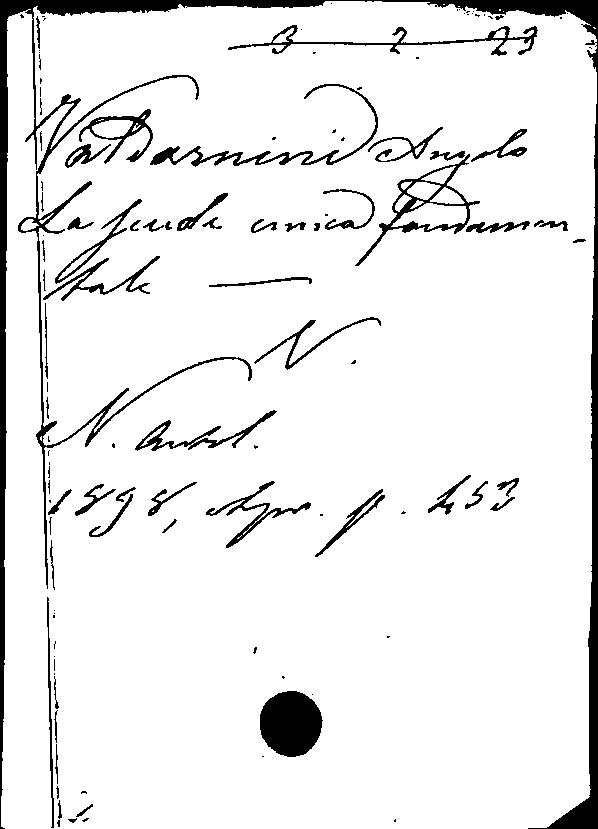 3. 2. 23
Valdarnini Angelo
La scuola unica fondamen-
tale —
V.
N. Antol.
1898, Apr. p. 453